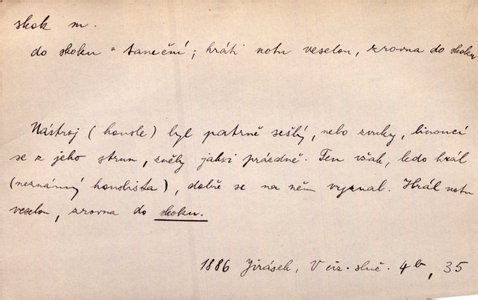 skok m.
do skoku = taneční; hráti notu veselou, zrovna do skoku
Nástroj (housle) byl patrně sešlý, neboť zvuky, linoucí
se z jeho strun, zněly jaksi prázdně. Ten však, kdo hrál
(neznámý houslista), dobře se na něm vyznal. Hrál notu
veselou, zrovna do skoku.
1886 Jirásek, V ciz. služ. 4b, 35